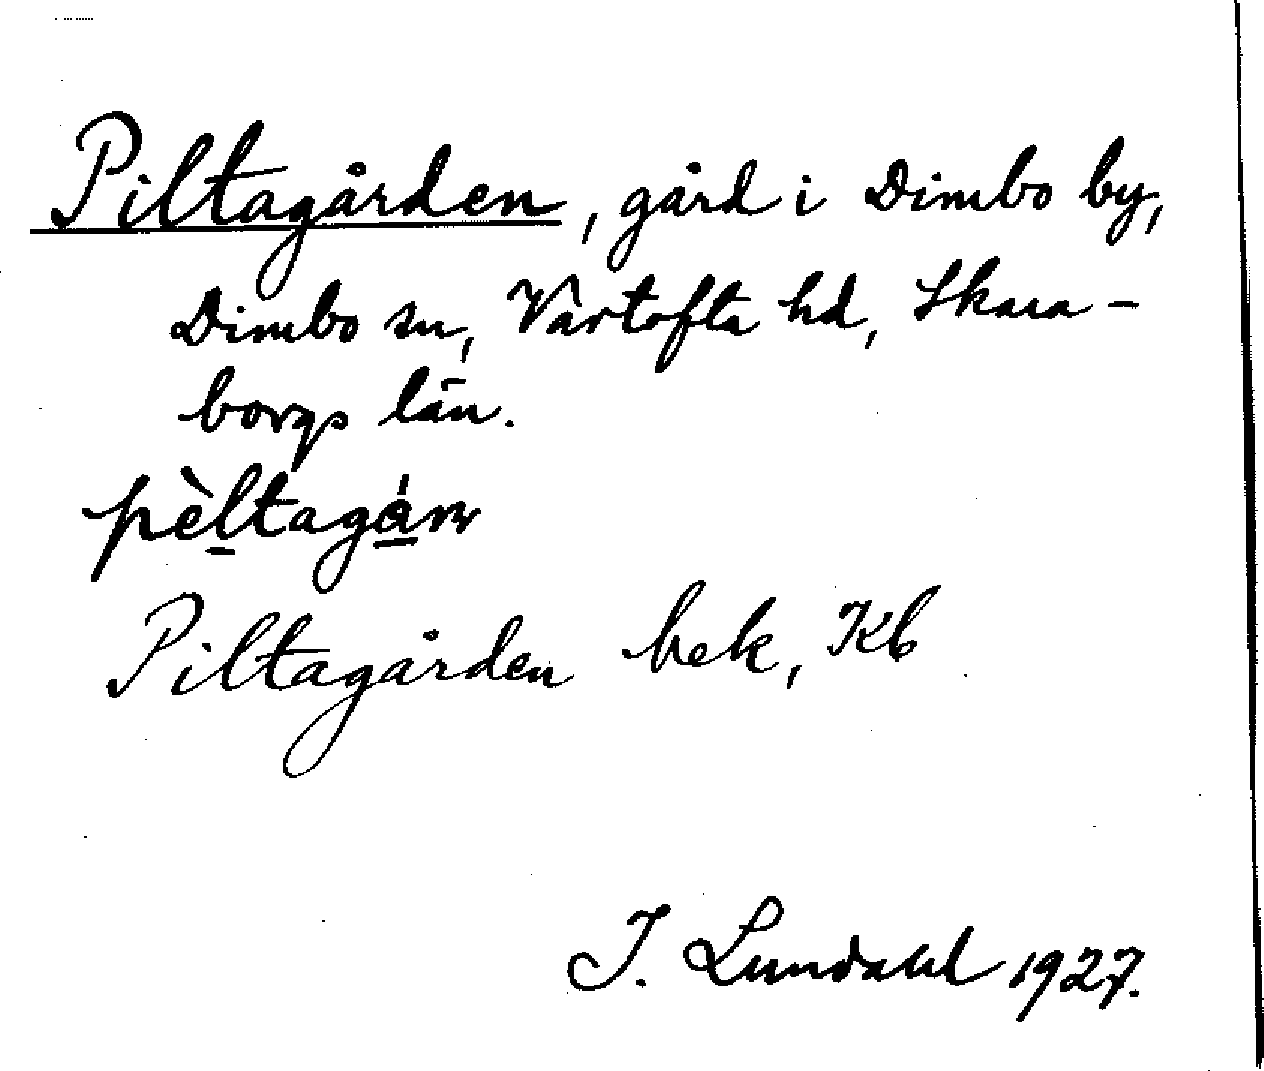 Piltagården, gård i Dimbo by,
Dimbo sn, Vartofta hd, Skara-
borgs län.
pèltagárn
Piltagården bek, Kb
I. Lundahl 1927.